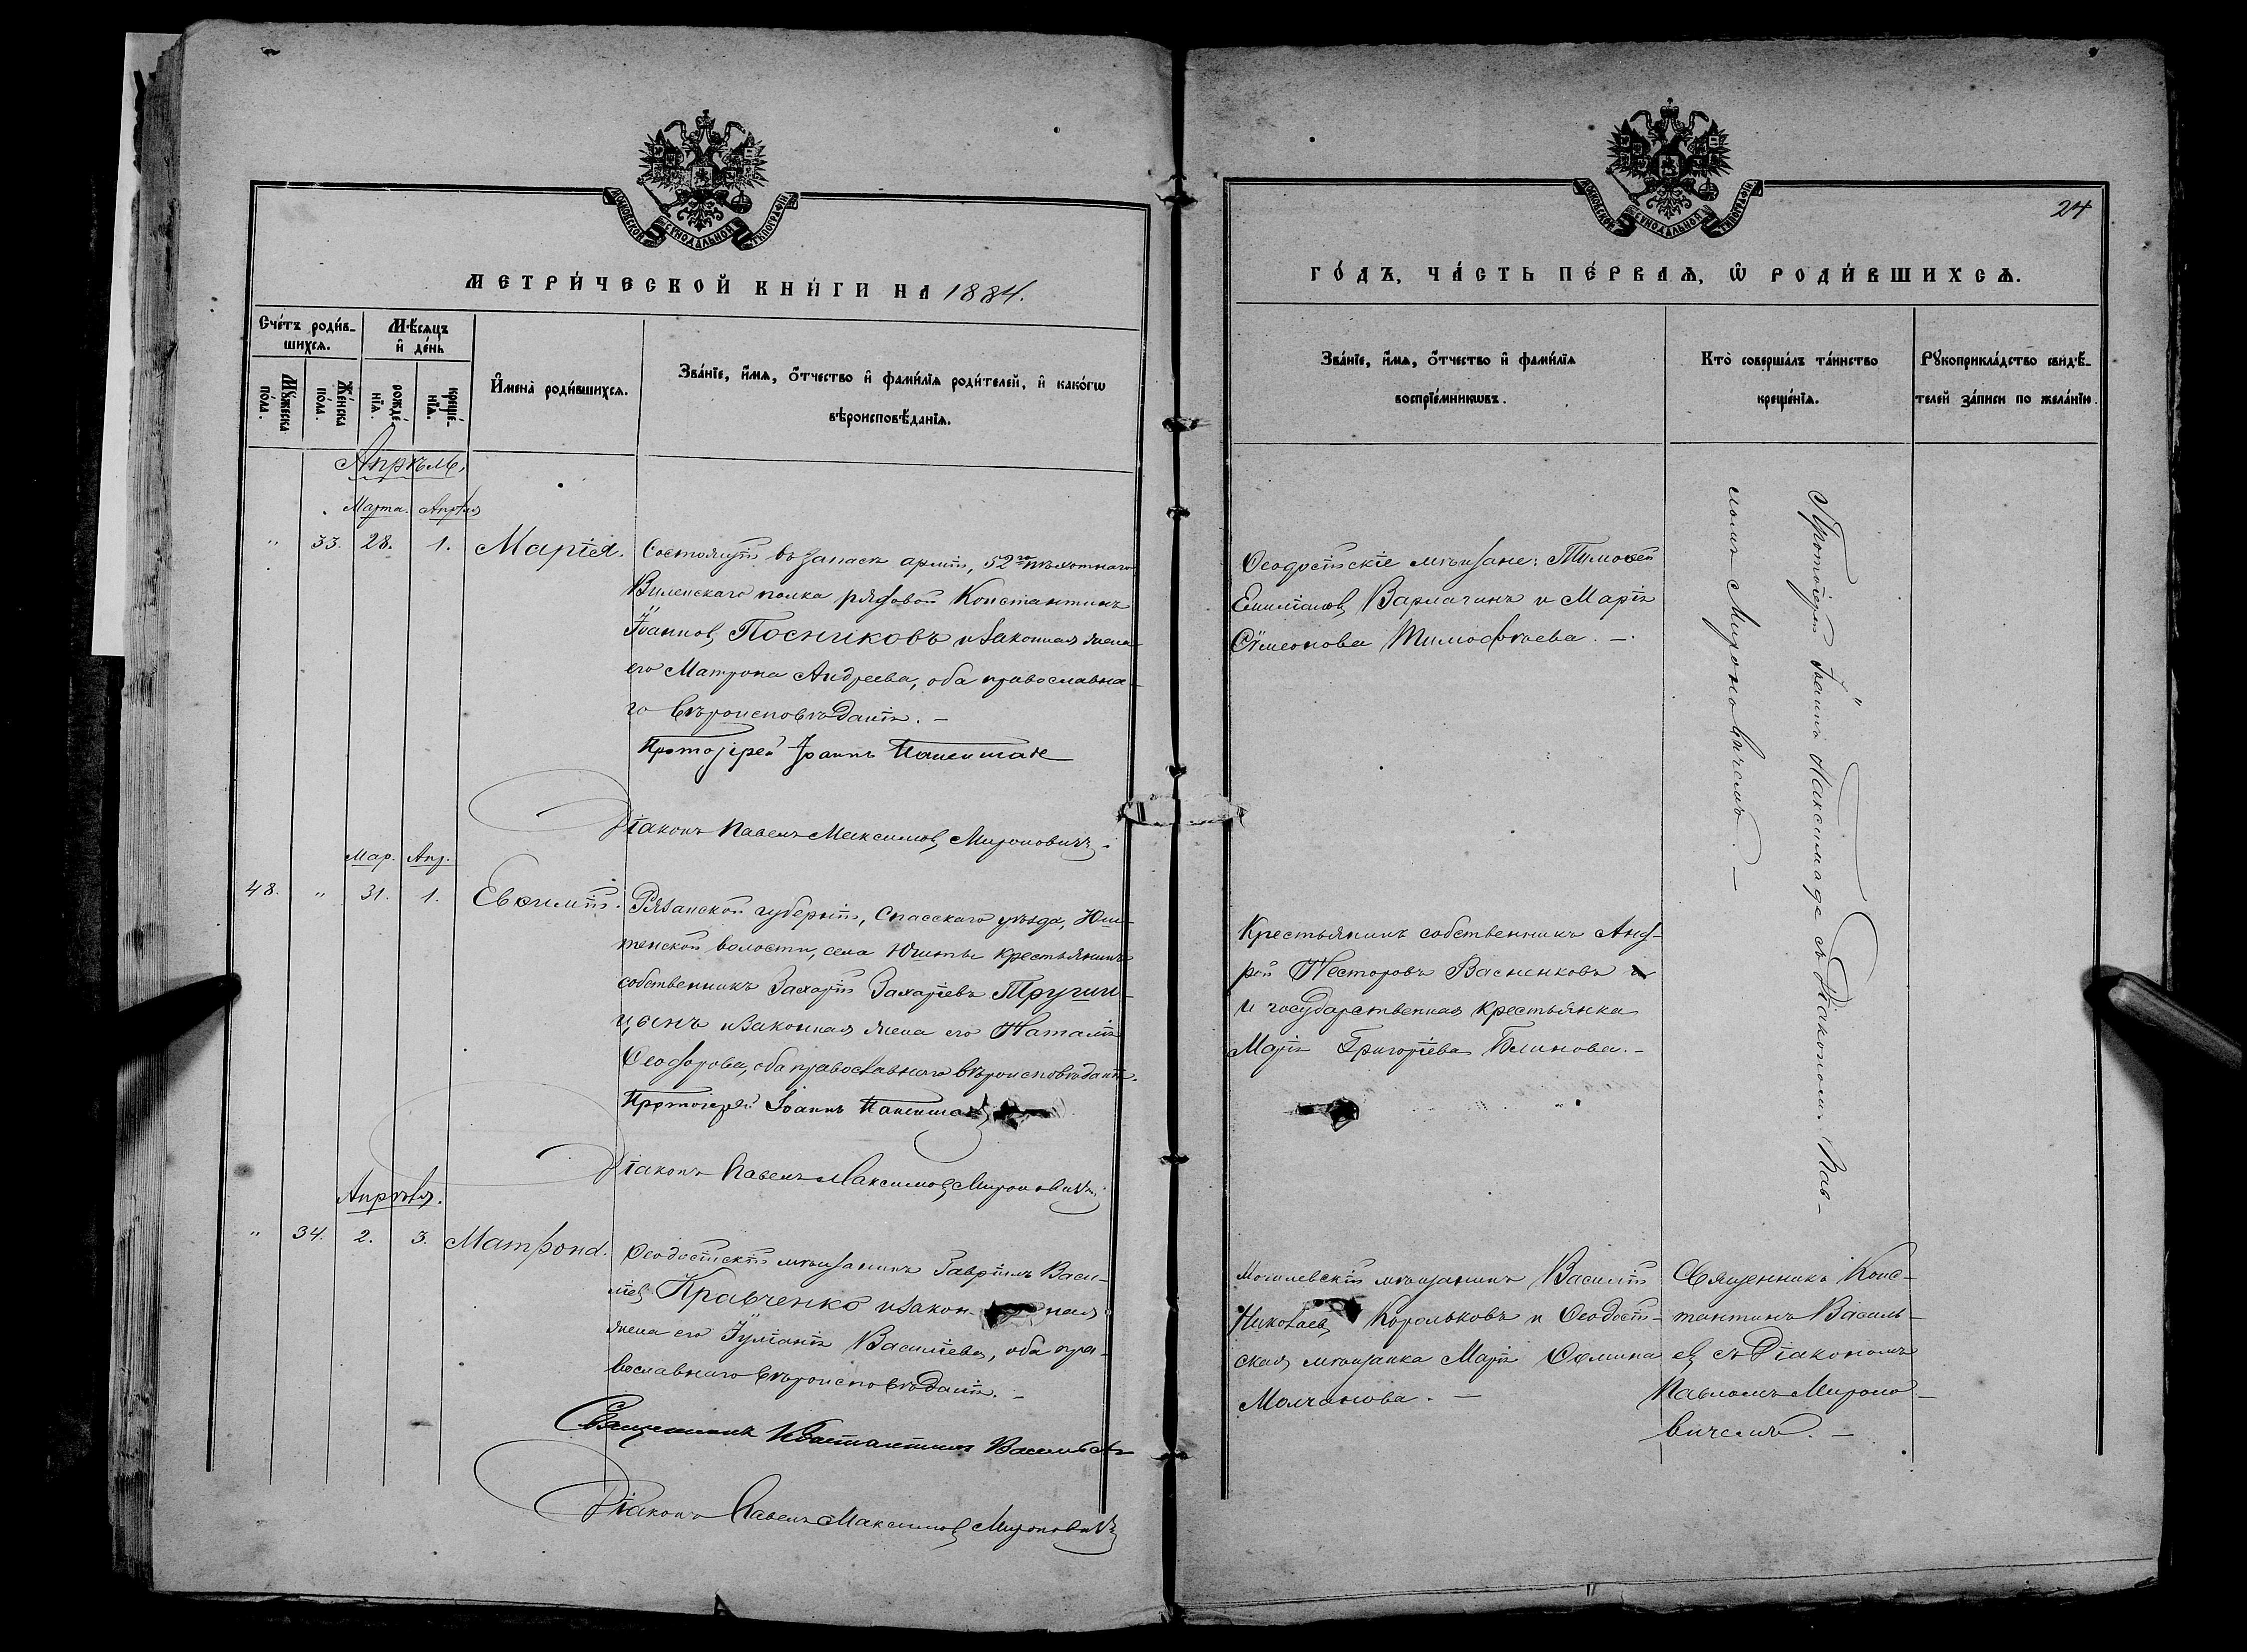 МОСКОВСКОЙ СѴНОДАЛЬНОЙ ТѴПОГРАФІИ
МЕТРИ́ЧЕСКОЙ КНИ́ГИ НА 1884.
Сче́тъ роди́в-
шихсѧ.
Мꙋ́жеска
по́ла.
Же́нска
по́ла.
Мѣ́сѧцъ
и҆ де́нь
рожде́-
нїѧ.
креще́-
нїѧ.
И҆мена̀ роди́вшихсѧ.
Зва́нїе, и҆́мѧ, о҆́тчество и҆ фами́лїѧ роди́телей, и҆ како́гѡ
вѣроисповѣ́данїѧ.
Апрѣль,
Марта. Апрѣля
" 33. 28. 1. Марія.
Состоящій въ запасѣ арміи, 52го пѣхотнаго
Виленскаго полка рядовой Константинъ
Іоанновъ Посниковъ и законная жена
его Матрона Андреева, оба православна-
го вѣроисповѣданія. —
Протоіерей Іоаннъ
Діаконъ Павелъ Максимовъ Мироновичъ.
Мар. Апр.
48. " 31. 1. Евѳимій.
Рязанской губерніи, Спасскаго уѣзда, Юш-
тенской волости, села Юшты крестьянинъ
собственникъ Захарій Захаріевъ
и законная жена его Наталія
Ѳеодорова, оба православнаго вѣроисповѣданія.
Протоіерей Іоаннъ
Діаконъ Павелъ Максимовъ Мироновичъ.
Апрѣля.
" 34. 2. 3. Матрона.
Ѳеодосійскій мѣщанинъ Гавріилъ Васи-
ліевъ Кравченко и закон- ная
жена его Іуліанія Василіева, оба пра-
вославнаго вѣроисповѣданія. —
Священникъ Константинъ Васильевъ
Діаконъ Павелъ Максимовъ Мироновичъ
МОСКОВСКОЙ СѴНОДАЛЬНОЙ ТѴПОГРАФІИ
24
ГО́ДЪ, ЧА́СТЬ ПЕ́РВАѦ, Ѿ РОДИ́ВШИХСѦ.
Зва́нїе, и҆́мѧ, о҆́тчество и҆ фами́лїѧ
воспрїе́мникѡвъ.
Кто̀ соверша́лъ та́инство
креще́нїѧ.
Рꙋкоприкла́дство свидѣ́-
телей за́писи по жела́нїю.
Ѳеодосійскіе мѣщане: Тимоѳей
Емиліановъ Вармачинъ и Марія
Сѵмеонова Тимофѣева. —
Протоіерей Іоаннъ съ Діакономъ Пав-
ломъ Мироновичемъ. —
Крестьянинъ собственникъ Анд-
рей Несторовъ Васненковъ и
и государственная крестьянка
Марія Григоріева Блинова. —
Могилевскій мѣщанинъ Василій
Николаевъ Корольковъ и Ѳеодосій-
ская мѣщанка Марія Ѳомина
Молчанова. —
Священникъ Конс-
тантинъ Василь-
евъ съ Діакономъ
Павломъ Мироно-
вичемъ. —